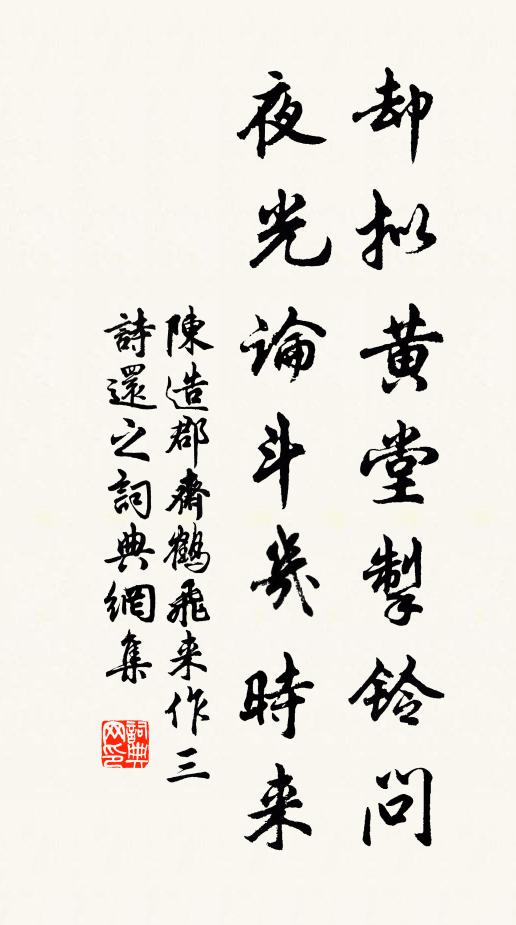 却拟黄堂掣铃問
夜光論斗幾時来
陳造郡齋鶴飛来作三
詩還之詞典網集
詞典网印